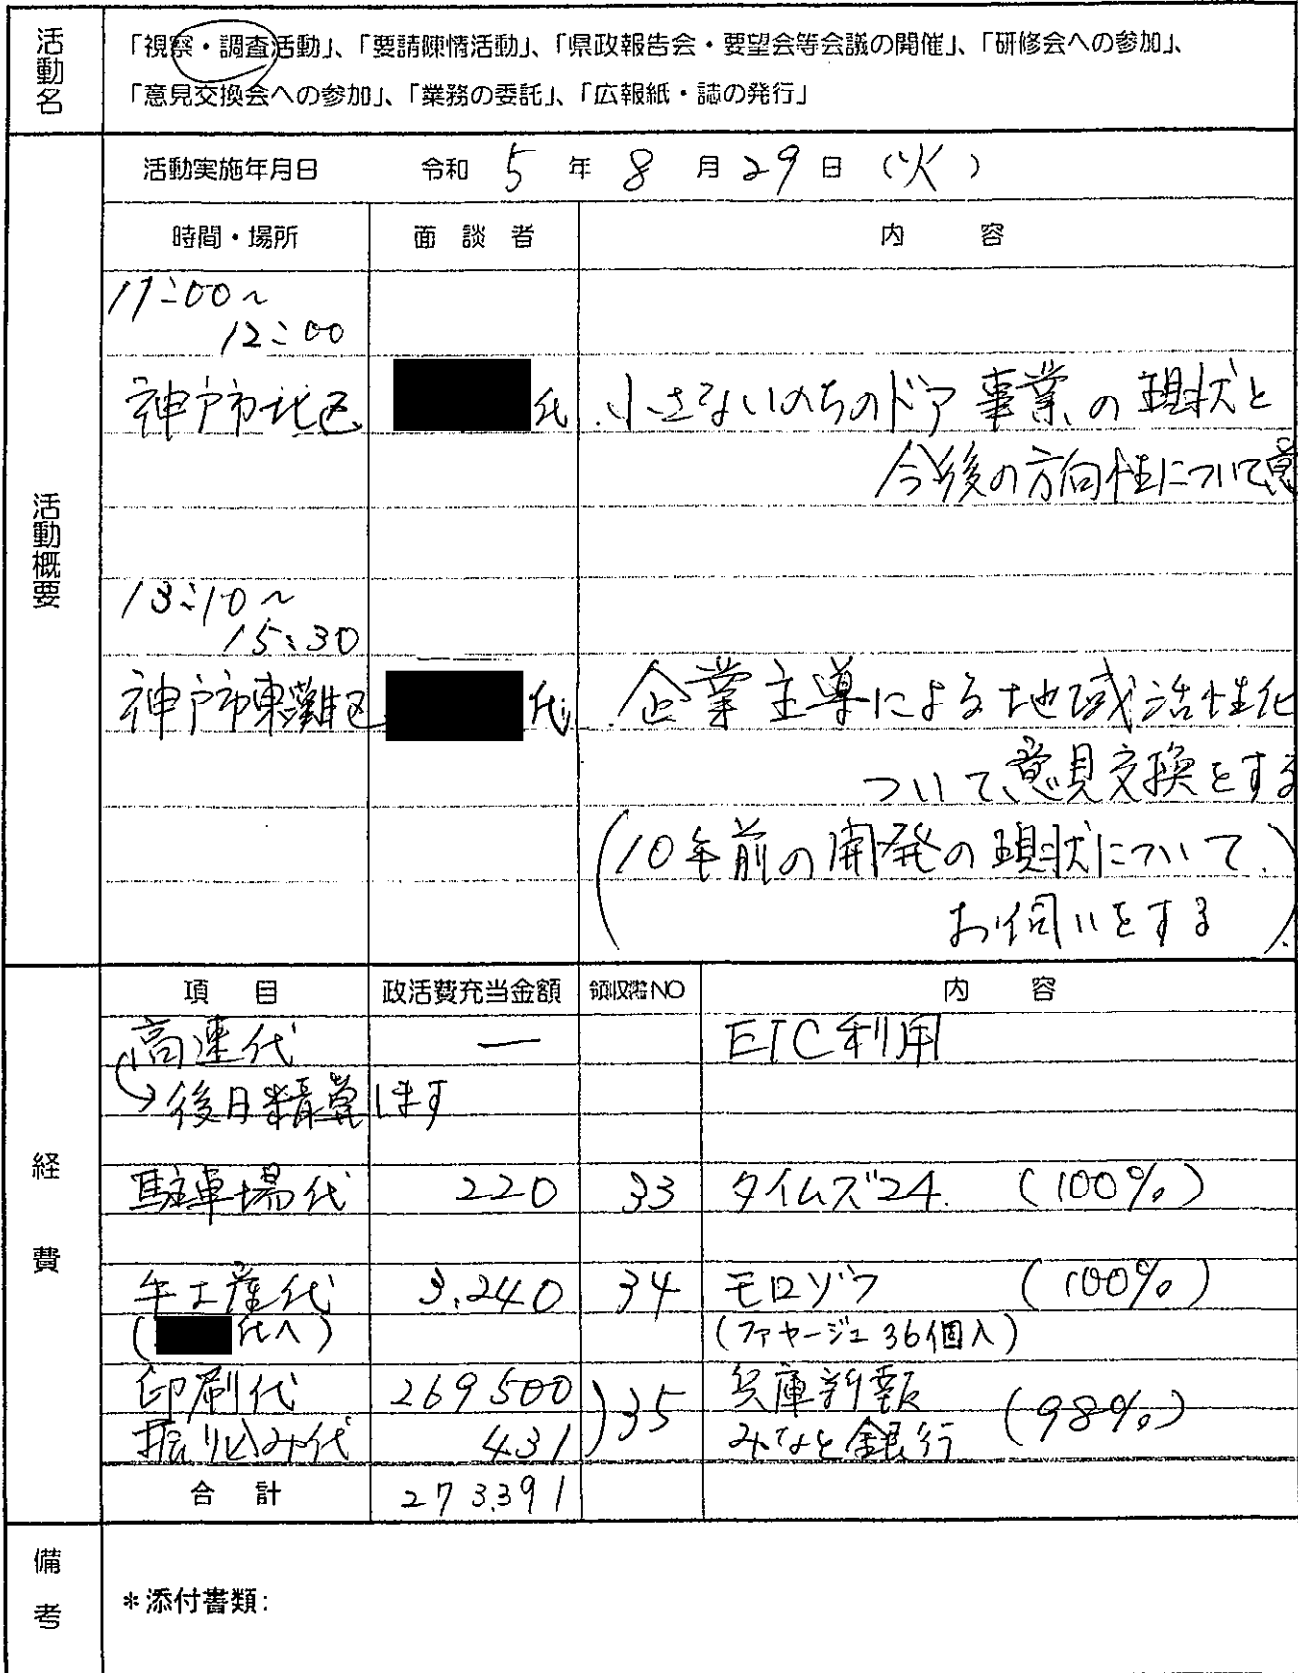 活動名
「視察・調査活動」、「要請陳情活動」、「県政報告会・要望会等会議の開催」、「研修会への参加」、
「意見交換会への参加」、「業務の委託」、「広報紙・誌の発行」
活動概要
活動実施年月日 令和 5 年 8 月 29 日 (火)
時間・場所 面談者 内容
11:00〜
12:00
神戸市北区 氏 小さないのちのドア事業の現状と
今後の方向性について意
13:10〜
15:30
神戸市東灘区 氏 企業主導による地域活性化
ついて、意見交換をする
(10年前の開発の現状について
お伺いをする)
経費
項目 政活費充当金額 領収書NO 内容
高速代 — ETC利用
→後日精算します
駐車場代 220 33 タイムズ24. (100%)
手土産代 3,240 34 モロゾフ (100%)
( 氏へ) (ファヤージュ 36個入)
印刷代 269500 )35 兵庫新報 (98%)
振り込み代 431 みなと銀行
合計 273,391
備考
*添付書類: